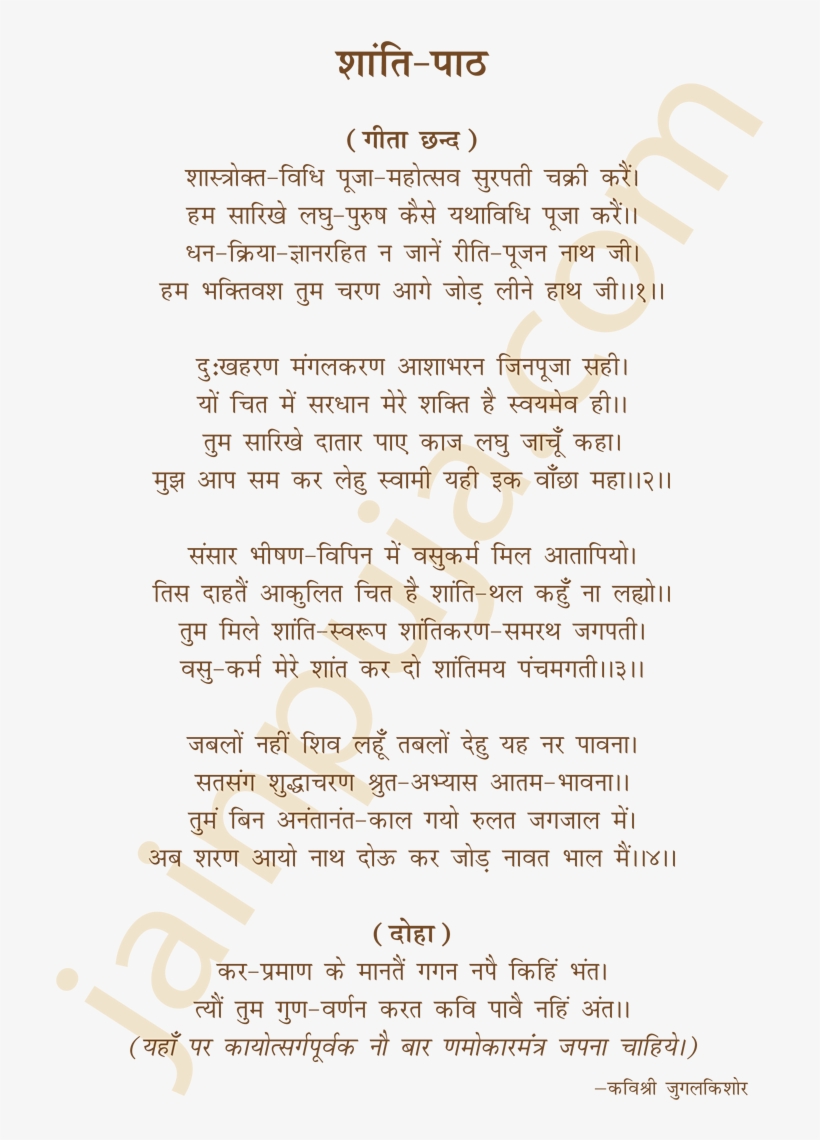 शांति-पाठ
(गीता छन्द)
शास्त्रोक्त-विधि पूजा-महोत्सव सुरपती चक्री करैं।
हम सारिखे लघु-पुरुष कैसे यथाविधि पूजा करैं।।
धन-क्रिया-ज्ञानरहित न जानें रीति-पूजन नाथ जी।
हम भक्तिवश तुम चरण आगे जोड़ लीने हाथ जी।।१।।
दुःखहरण मंगलकरण आशाभरन जिनपूजा सही।
यों चित में सरधान मेरे शक्ति है स्वयमेव ही।।
तुम सारिखे दातार पाए काज लघु जाचूँ कहा।
मुझ आप सम कर लेहु स्वामी यही इक वाँछा महा।।२।।
संसार भीषण-विपिन में वसुकर्म मिल आतापियो।
तिस दाहतैं आकुलित चित है शांति-थल कहुँ ना लह्यो।।
तुम मिले शांति-स्वरूप शांतिकरण-समरथ जगपती।
वसु-कर्म मेरे शांत कर दो शांतिमय पंचमगती।।३।।
जबलों नहीं शिव लहूँ तबलों देहु यह नर पावना।
सतसंग शुद्धाचरण श्रुत-अभ्यास आतम-भावना।।
तुमं बिन अनंतानंत-काल गयो रुलत जगजाल में।
अब शरण आयो नाथ दोऊ कर जोड़ नावत भाल मैं।।४।।
(दोहा)
कर-प्रमाण के मानतैं गगन नपै किहिं भंत।
त्यौं तुम गुण-वर्णन करत कवि पावै नहिं अंत।।
(यहाँ पर कायोत्सर्गपूर्वक नौ बार णमोकारमंत्र जपना चाहिये।)
–कविश्री जुगलकिशोर
jainpuja.com